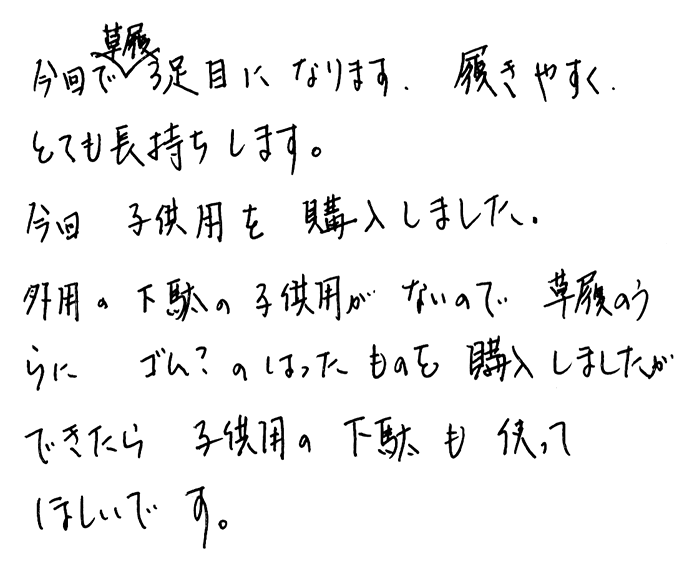 今回で草履3足目になります. 履きやすく.
とても長持ちします。
今回 子供用を 購入しました.
外用の下駄の子供用が ないので 草履のう
らに ゴム?のはったものを購入しましたが
できたら 子供用の 下駄も 使って
ほしいです。